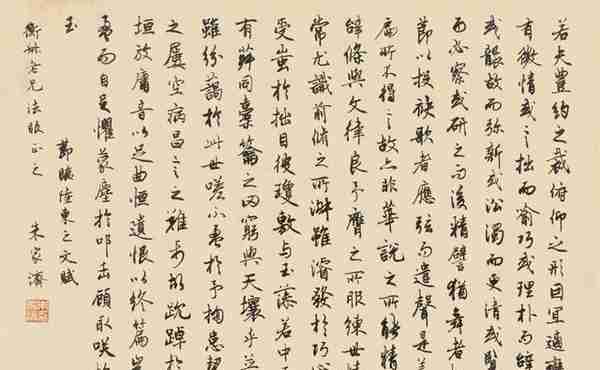 若夫豐約之裁俯仰之形因宜適變
有微情或言拙而喻巧或理朴而辭
或襲故而弥新或沿濁而更清或覽
而必察或研之而後精譬猶舞者
節以投袂歌者應弦而遣聲是蓋
扁所不得言故亦非華說之所能精
辭條與文律良予膺之所服練世情
常尤識前脩之所淑雖濬發於巧心
受蚩於拙目彼瓊敷与玉藻若中
有菽同橐籥之罔窮與天壤乎並
雖紛藹於此世嗟不盈於予掬患挈
之屢空病昌言之難屬故踸踔於
垣放庸音以足曲恒遺恨以終篇豈
盈而自足懼蒙塵於叩缶顧取咲
玉 節臨陸柬之文賦
衡如老兄法眼正之 朱家濟